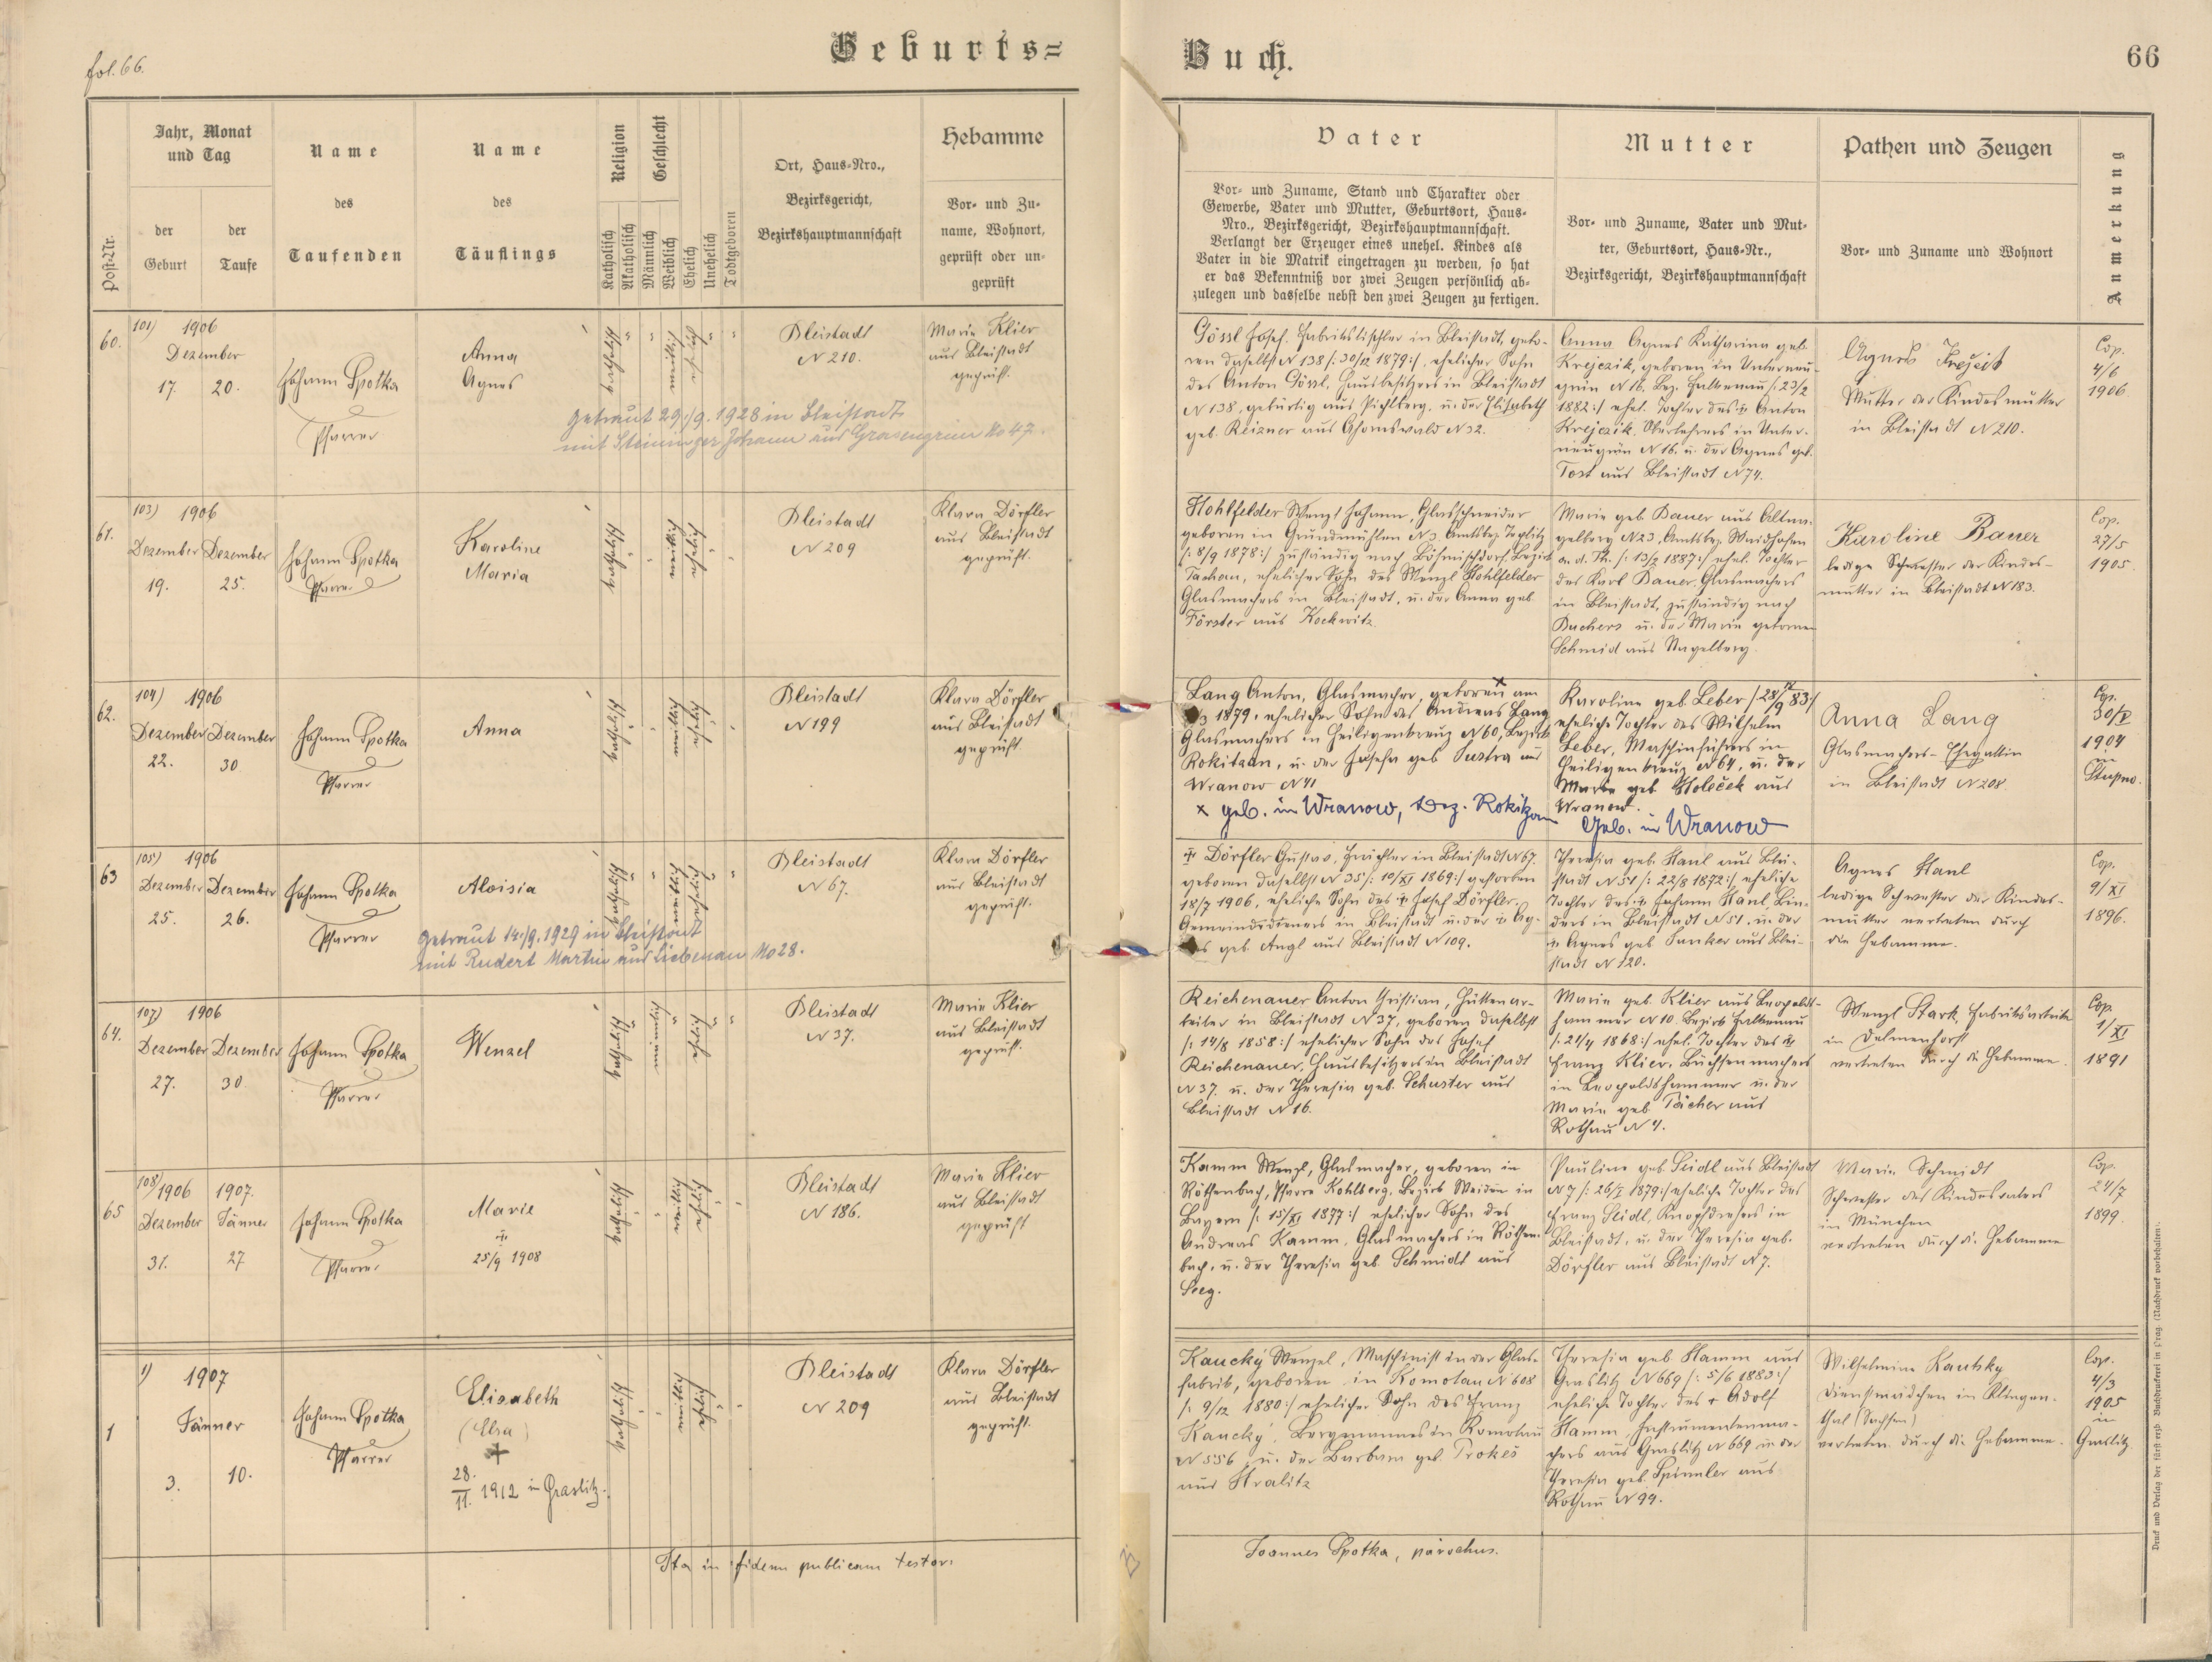 fol. 66.
Geburts=
Buch.
66
Post-Nr.
Jahr, Monat
und Tag
der
Geburt
der
Taufe
Name
des
Taufenden
Name
des
Täuflings
Religion
Katholisch
Akatholisch
Geschlecht
Männlich
Weiblich
Ehelich
Unehelich
Todtgeboren
Ort, Haus-Nro.,
Bezirksgericht,
Bezirkshauptmannschaft
Hebamme
Vor- und Zu-
name, Wohnort,
geprüft oder un-
geprüft
Vater
Vor- und Zuname, Stand und Charakter oder
Gewerbe, Vater und Mutter, Geburtsort, Haus-
Nro., Bezirksgericht, Bezirkshauptmannschaft.
Verlangt der Erzeuger eines unehel. Kindes als
Vater in die Matrik eingetragen zu werden, so hat
er das Bekenntniß vor zwei Zeugen persönlich ab-
zulegen und dasselbe nebst den zwei Zeugen zu fertigen.
Mutter
Vor- und Zuname, Vater und Mut-
ter, Geburtsort, Haus-Nr.,
Bezirksgericht, Bezirkshauptmannschaft
Pathen und Zeugen
Vor- und Zuname und Wohnort
Anmerkung
60.
101) 1906
Dezember
17. 20.
Johann Spotka
Pfarrer
Anna
Agnes
katholisch
weiblich
ehelich
Bleistadt
N 210.
Marie Klier
aus Bleistadt
geprüft.
getraut 29./9. 1928 in Bleistadt
mit Steininger Johann aus Grasengrün No 47.
Gössl Josef, Fabrikstischler in Bleistadt, gebo-
ren daselbst N 138 /: 30/12 1879 :/, ehelicher Sohn
des Anton Gössl, Hausbesitzers in Bleistadt
N 138, gebürtig aus Pichlberg, u. der Elisabeth
geb. Reizner aus Ahornswald N 32.
Anna Agnes Katharina geb.
Krejczik, geboren in Unterneu-
grün N 16, Bez. Falkenau /: 23/2
1882 :/ ehel. Tochter des ✝ Anton
Krejczik, Oberlehrers in Unter-
neugrün N 16. u. der Agnes geb.
Tost aus Bleistadt N 74.
Agnes
Mutter der Kindesmutter
in Bleistadt N 210.
Cop.
4/6
1906.
61.
103) 1906
Dezember Dezember
19. 25.
Johann Spotka
Pfarrer
Karoline
Maria
katholisch
weiblich
ehelich
Bleistadt
N 209
Klara Dörfler
aus Bleistadt
geprüft.
Hohlfelder Wenzl Johann, Glasschneider
geboren in Grundmühlen N 3 Amtsbez. Teplitz
/: 8/9 1878 :/ zuständig nach Böhmischdorf, Bezirk
Tachau, ehelicher Sohn des Wenzl Hohlfelder
Glasmachers in Bleistadt, u. der Anna geb.
Förster aus Kockwitz.
Marie geb. Bauer aus Altna-
gelberg N 23, Amtsbez. Waidhofen
a. d. Th. /: 13/2 1887 :/ ehel. Tochter
des Karl Bauer, Glasmachers
in Bleistadt, zuständig nach
Buchers u. der Marie gebornen
Schmid aus Nagelberg.
Karoline Bauer
ledige Schwester der Kindes-
mutter in Bleistadt N 183.
Cop.
27/5
1905.
62.
104) 1906
Dezember Dezember
22. 30.
Johann Spotka
Pfarrer
Anna
katholisch
weiblich
ehelich
Bleistadt
N 199
Klara Dörfler
aus Bleistadt
geprüft.
Lang Anton, Glasmacher, geboren × am
/3 1879, ehelicher Sohn des Andreas Lang
Glasmachers in Heiligenkreuz N 60, Bezirk
Rokitzan, u. der Josefa geb. Sustra aus
Wranow N 41
× geb. in Wranow, Bez. Rokitzan
Karoline geb. Leber /28/9 83/
eheliche Tochter des Wilhelm
Leber, Maschinführers in
Heiligenkreuz N 64, u. der
Marie geb. Holeček aus
Wranow.
Geb. in Wranow
Anna Lang
Glasmachers-Ehegattin
in Bleistadt N 208.
Cop.
30/V
1904
in
Stupno.
63
105) 1906
Dezember Dezember
25. 26.
Johann Spotka
Pfarrer
Aloisia
katholisch
weiblich
ehelich
Bleistadt
N 67.
Klara Dörfler
aus Bleistadt
geprüft.
getraut 14./9. 1929 in Bleistadt
mit Rudert Martin aus Liebenau No 28.
✝ Dörfler Gustav, in Bleistadt N 67.
geboren daselbst N 35 /: 10/XI 1869 :/ gestorben
18/7 1906, eheliche Sohn des ✝ Josef Dörfler,
Gemeindedieners in Bleistadt u. der ✝ Ag-
nes geb. Angl aus Bleistadt N 109.
Theresia geb. Hanl aus Blei-
stadt N 51 /: 22/8 1872 :/ eheliche
Tochter des ✝ Johann Hanl, Bin-
ders in Bleistadt N 51. u. der
✝ Agnes geb. Junker aus Blei-
stadt N 120.
Agnes Hanl
ledige Schwester der Kindes-
mutter vertreten durch
die Hebamme.
Cop.
9/XI
1896.
64.
107) 1906
Dezember Dezember
27. 30
Johann Spotka
Pfarrer
Wenzel
katholisch
männlich
ehelich
Bleistadt
N 37.
Marie Klier
aus Bleistadt
geprüft.
Reichenauer Anton Christian, Hüttenar-
beiter in Bleistadt N 37, geboren daselbst
/: 14/8 1858 :/ ehelicher Sohn des Josef
Reichenauer, Hausbesitzers in Bleistadt
N 37. u. der Theresia geb. Schuster aus
Bleistadt N 16.
Marie geb. Klier aus Leopolds-
hammer N 10. Bezirk Falkenau
/: 21/4 1868 :/ ehel. Tochter des ✝
Franz Klier, Büchsenmachers
in Leopoldshammer u. der
Marie geb. Pächer aus
Rothau N 4.
Wenzl Stark, Fabriksarbeiter
in Delmenhorst
vertreten durch die Hebamme.
Cop.
1/XI
1891
65
108) 1906 1907.
Dezember Jänner
31. 27
Johann Spotka
Pfarrer
Marie
✝
25/9 1908
katholisch
weiblich
ehelich
Bleistadt
N 186.
Marie Klier
aus Bleistadt
geprüft
Kamm Wenzl, Glasmacher, geboren in
Röthenbach, Pfarre Kohlberg, Bezirk Weiden in
Bayern /: 15/XI 1877 :/ ehelicher Sohn des
Andreas Kamm, Glasmachers in Röthen-
bach, u. der Theresia geb. Schmidt aus
Seeg.
Pauline geb. Seidl aus Bleistadt
N 7 /: 26/I 1879 :/ eheliche Tochter des
Franz Seidl, Knopfdrehers in
Bleistadt, u. der Theresia geb.
Dörfler aus Bleistadt N 7.
Marie Schmidt
Schwester des Kindesvaters
in München
vertreten durch die Hebamme
Cop.
24/7
1899.
1
1) 1907
Jänner
3. 10.
Johann Spotka
Pfarrer
Elisabeth
(Elsa)
✝
28.
11. 1912 in Graslitz.
katholisch
weiblich
ehelich
Bleistadt
N 209
Klara Dörfler
aus Bleistadt
geprüft.
Kaucký Wenzel, Maschinist in der Glas-
fabrik, geboren in Komotau N 608
/: 9/12 1880 :/ ehelicher Sohn des Franz
Kaucký, Bergmannes in Komotau
N 556, u. der Barbara geb. Prokeš
aus Stralitz
Theresia geb. Hamm aus
Graslitz N 669 /: 5/6 1883 :/
eheliche Tochter des + Adolf
Hamm, Instrumentenma-
chers aus Graslitz N 669 u. der
Theresia geb. Spinnler aus
Rothau N 99.
Wilhelmine Kautsky
Dienstmädchen in Klingen-
thal (Sachsen)
vertreten durch die Hebamme.
Cop.
4/3
1905
in
Graslitz.
Ita in fidem publicam testor:
Joannes Spotka, parochus.
Druck und Verlag der fürst-erzb. Buchdruckerei in Prag. (Nachdruck vorbehalten).